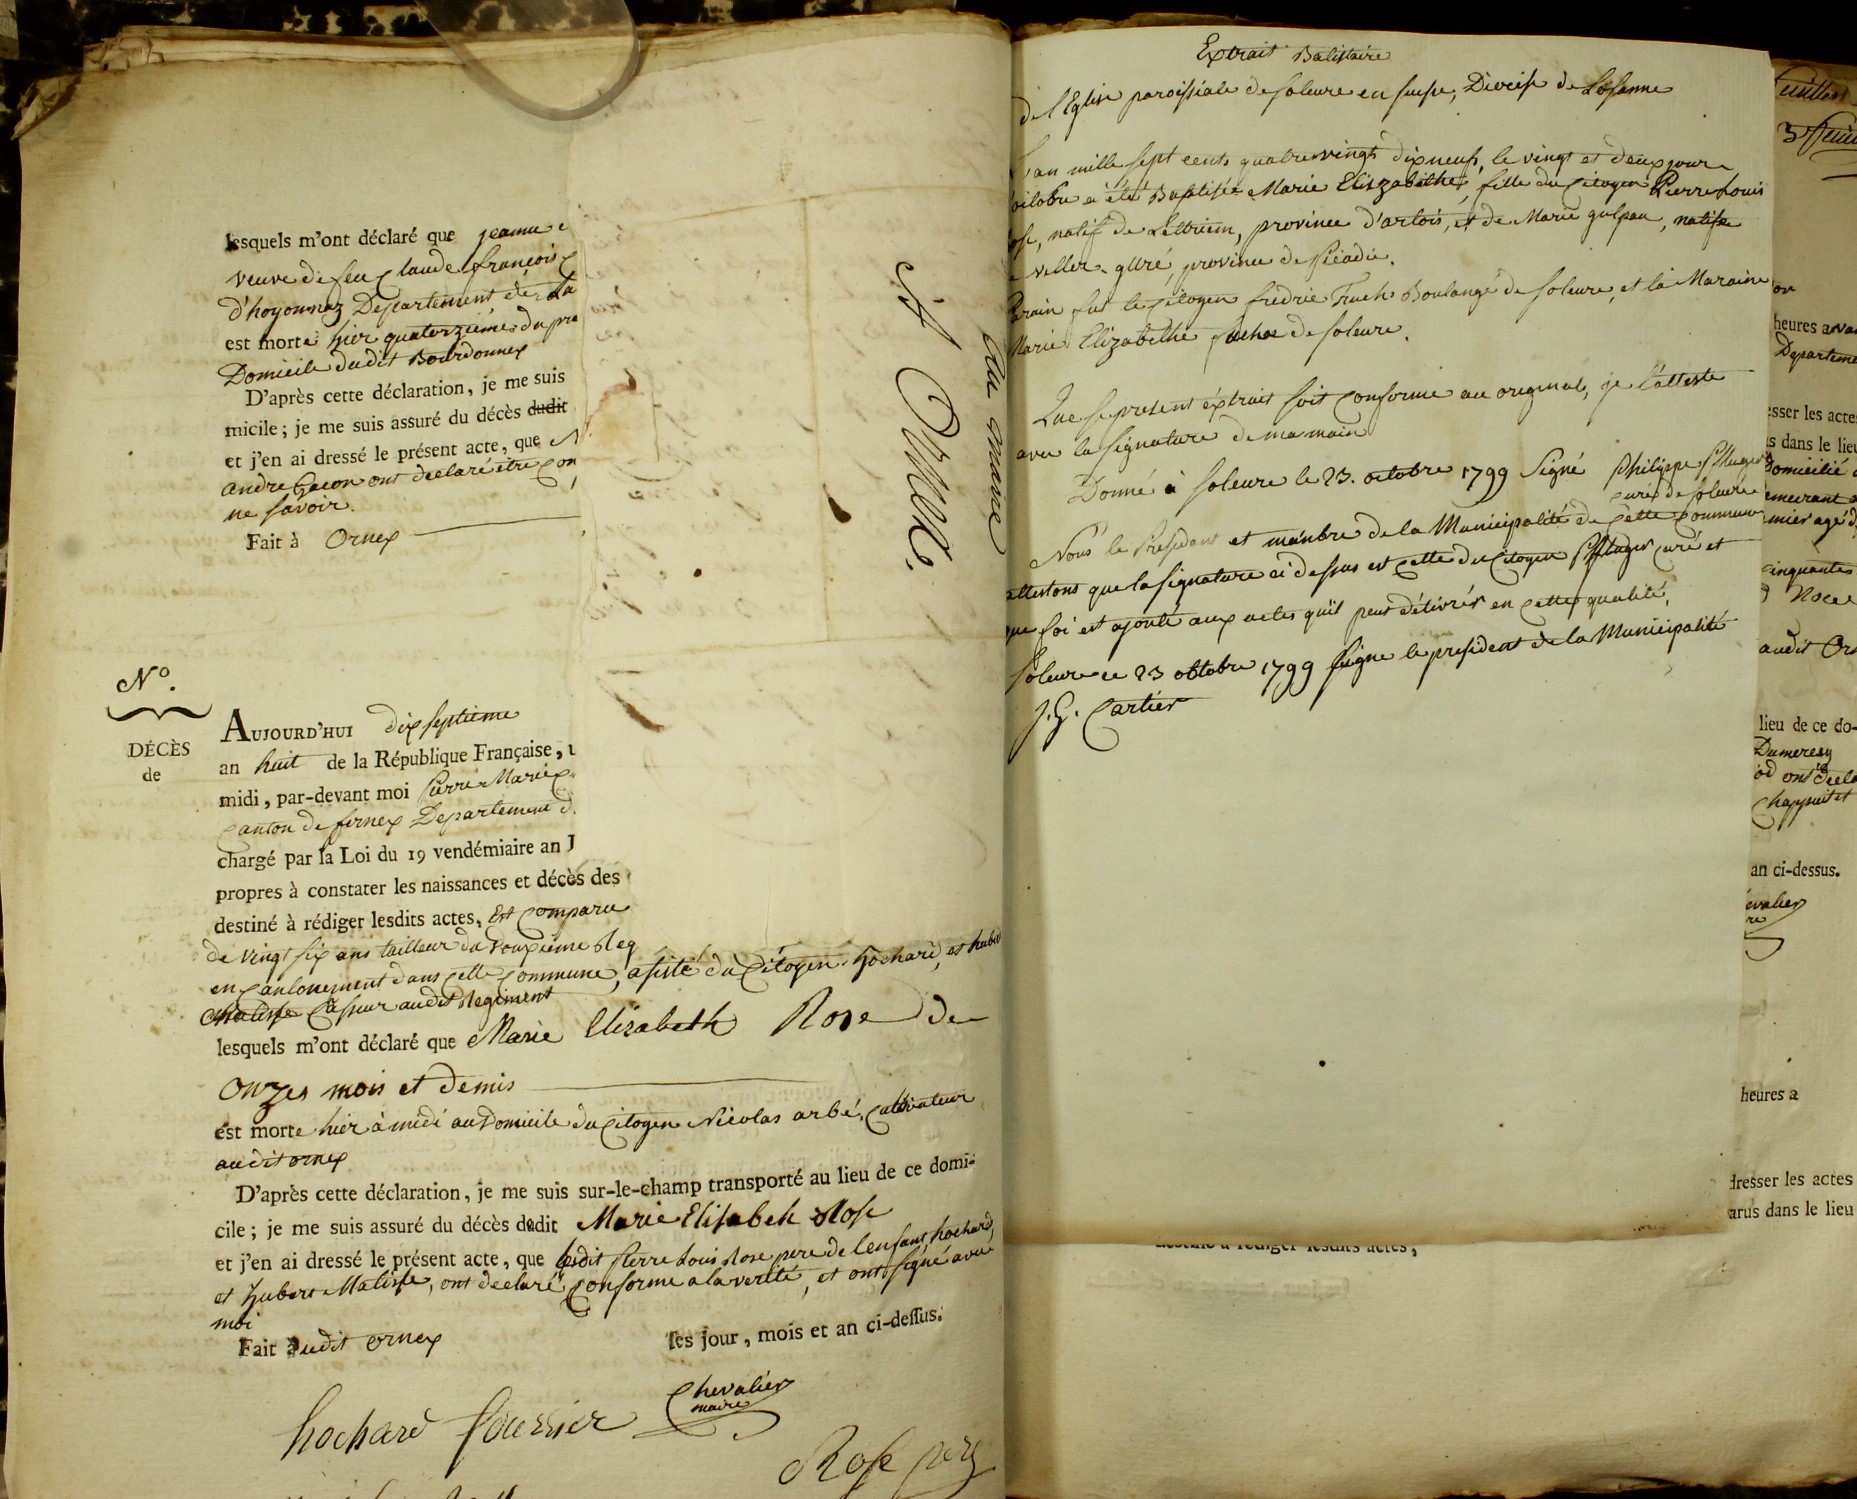 lesquels m'ont déclaré que jeanne
veuve de feu Claude françois
d'hoyonnaz Departement de La
est morte hier quatorzième du pre
Domicile dudit Bourdonnex
D'après cette déclaration, je me suis
micile ; je me suis assuré du décès dudit
et j'en ai dressé le présent acte, que
andre Gacon ont declaré être con
ne savoir.
Fait à Ornex
N°.
DÉCÈS
de
AUJOURD'HUI dix septieme
an huit de la République Française,
midi, par-devant moi Pierre Marie
Canton de fernex Departement d
chargé par la Loi du 19 vendémiaire an
propres à constater les naissances et décès des
destiné à rédiger lesdits actes, Est Comparu
de vingt six ans tailleur du douzième Reg
en Cantonnement dans cette Commune, assisté du Citoyen hochard, et huber
Malisse Chasseur audit Regiment
lesquels m'ont déclaré que Marie Elizabeth Rose de
onzes mois et demis
est morte hier à midi au Domicile du Citoyen Nicolas arbé, Cultivateur
audit ornex
D'après cette déclaration, je me suis sur-le-champ transporté au lieu de ce domi-
cile ; je me suis assuré du décès dudit Marie Elisabeh Rose
et j'en ai dressé le présent acte, que ledit Pierre Louis Rose pere de l'enfant, hochard,
et hubert Malisse, ont declaré conforme a la verité, et ont signé avec
moi
Fait audit ornex les jour, mois et an ci-dessus.
Chevalier
maire
hochard fourrier
Rose
Au maire
A Ornex.
Extrait Batistaire
de l'Eglise paroissiale de soleure en suisse, Diocese de Losanne
L'an mille sept cents quatre vingts dix neuf, le vingt et deux jour
octobre a été Baptisée Marie Eliszabethe, fille du Citoyen Pierre Louis
ose, natif de , province d'artois, et de Marie gulpau, natife
de viller , province de Picadie.
Parain fut le Citoyen fredric Truch Boulangé de soleure, et la Maraine
Marie Elizabethe de soleure.
Que se present extrait soit Conforme au original, je l'atteste
avec la signature de ma main
Donné à soleure le 23. octobre 1799 Signé Philippe Pfluger
curé de soleure
Nous le President et membre de la Municipalité de cette Commune
attestons que la signature ci dessus est celle du Citoyen Pfluger curé et
que foi est ajouté aux actes qu'il peut délivrér en cette qualité,
soleure ce 23 oktobre 1799 signe le president de la Municipalité
J. G. Cartier
heures ava
Departeme
esser les acte
s dans le lieu
Domicilié
emeurant a
mier agé d
cinquante
audit Or
lieu de ce do-
Dumeresq
od ont decla
Chappuit et
an ci-dessus.
evalier
re
heures a
dresser les actes
arus dans le lieu
destiné à rédiger lesdits actes,